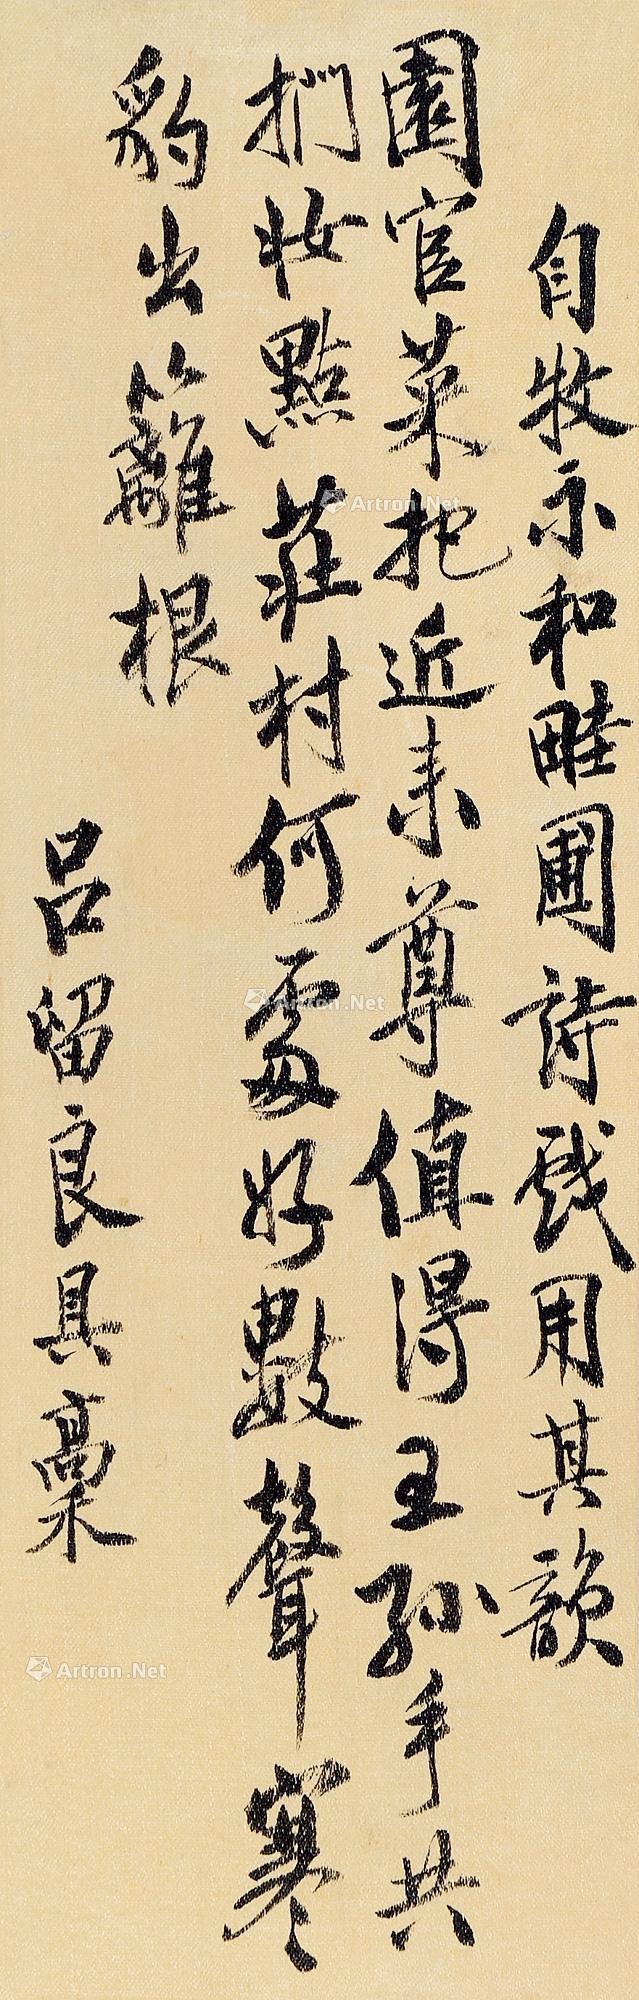 自牧示和畦圃詩戲用其韻
園官菜把近来尊值得王孫手共
捫妝點莊村何處好數聲寒
豹出籬根
吕留良具稾
Artron.Net
Artron.Net
Artron.Net